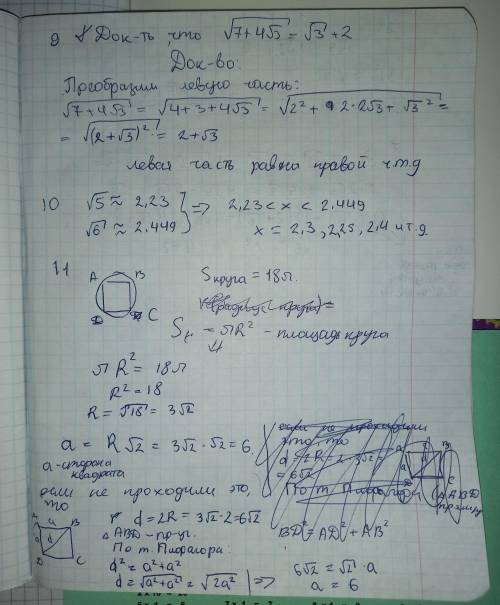 9 Док-ть, что √7+4√3 = √3 + 2
Док-во:
Преобразим левую часть:
√7+4√3 = √4+3+4√3 = √2² + 2·2√3 + √3² =
= √(2+√3)² = 2+√3
левая часть равна правой ч.т.д
10 √5 ≈ 2,23
√6 ≈ 2.449 } => 2,23 < x < 2.449
x = 2,3 , 2,25 , 2,4 и т.д
11 A B C D
Sкруга = 18π.
S = πR² – площадь круга
πR² = 18π
R² = 18
R = √18 = 3√2
a = R√2 = 3√2 · √2 = 6.
a - сторона
квадрата
если не проходили это,
то
A a B
a d
D C
d = 2R = 3√2·2 = 6√2
△ABD – пр-уг.
По т. Пифагора:
BD² = AD² + AB²
d² = a² + a²
d = √a² + a² = √2a² =>
6√2 = √2 · a
a = 6